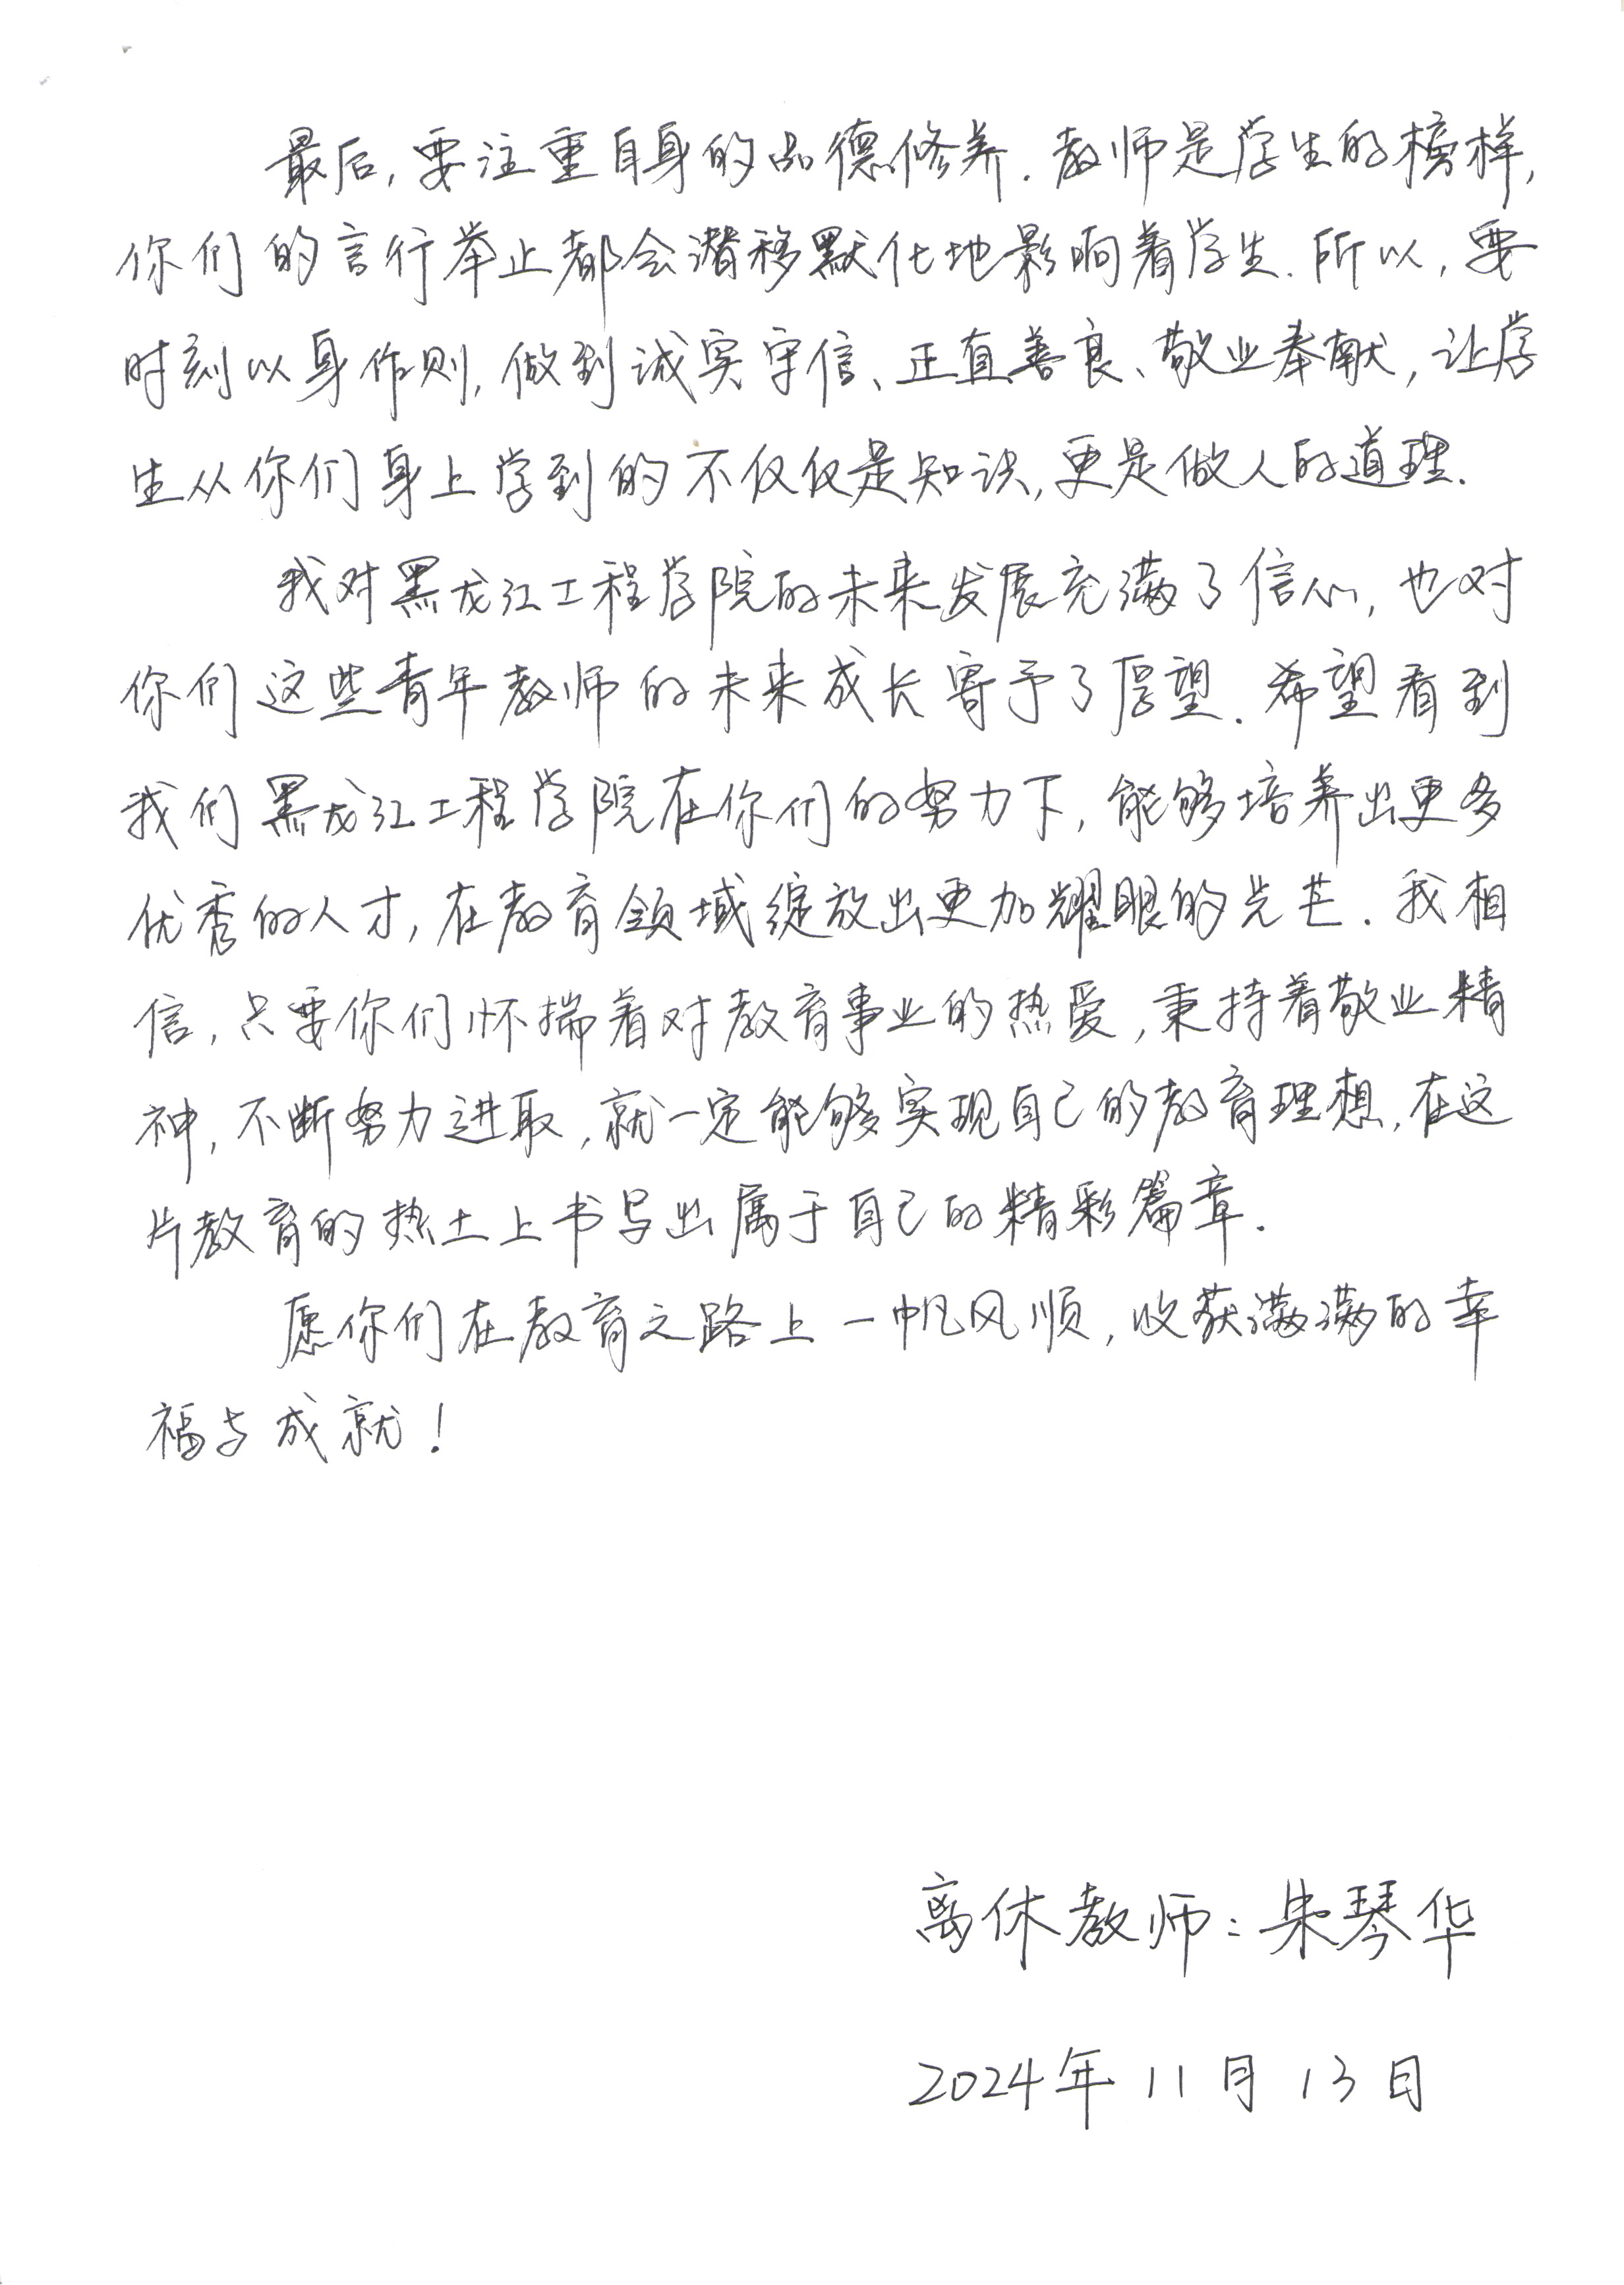 最后,要注重自身的品德修养.教师是学生的榜样,
你们的言行举止都会潜移默化地影响着学生.所以,要
时刻以身作则,做到诚实守信、正直善良、敬业奉献,让学
生从你们身上学到的不仅仅是知识,更是做人的道理.
我对黑龙江工程学院的未来发展充满了信心,也对
你们这些青年教师的未来成长寄予了厚望.希望看到
我们黑龙江工程学院在你们的努力下,能够培养出更多
优秀的人才,在教育领域绽放出更加耀眼的光芒.我相
信,只要你们怀揣着对教育事业的热爱,秉持着敬业精
神,不断努力进取,就一定能够实现自己的教育理想,在这
片教育的热土上书写出属于自己的精彩篇章.
愿你们在教育之路上一帆风顺,收获满满的幸
福与成就!
离休教师:朱琴华
2024年11月13日